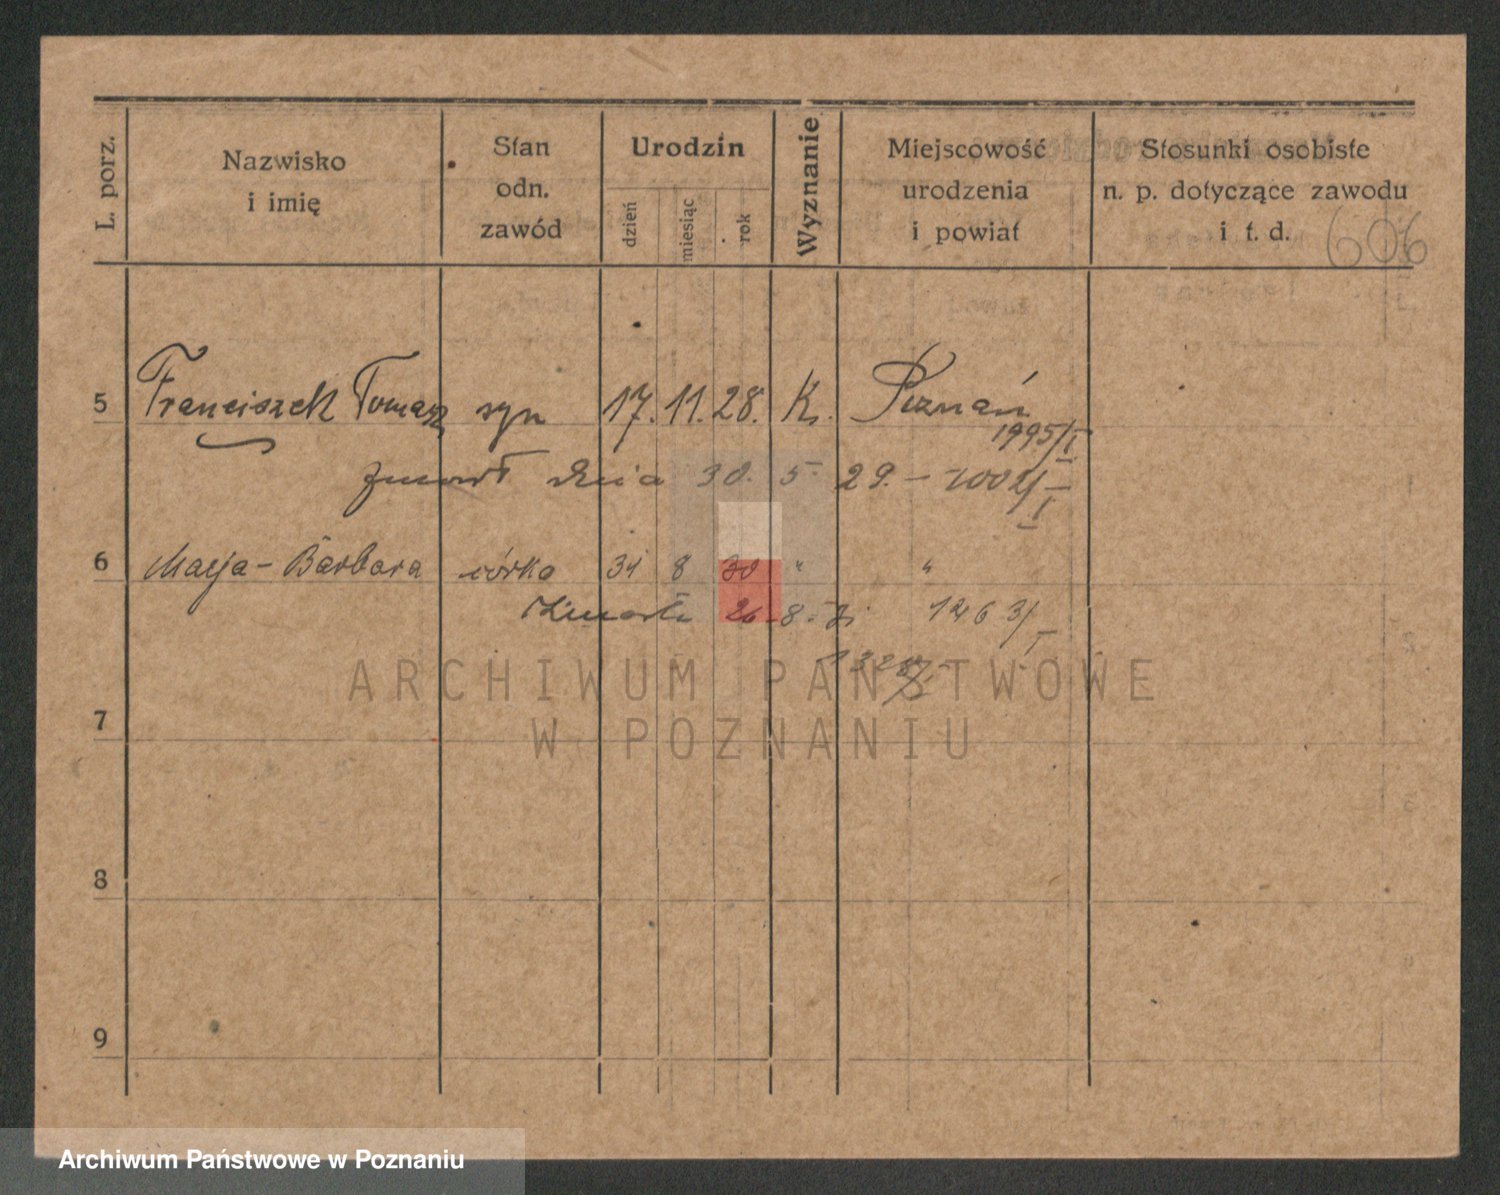 L. porz.
Nazwisko
i imię
Stan
odn.
zawód
Urodzin
dzień
miesiąc
rok
Wyznanie
Miejscowość
urodzenia
i powiat
Stosunki osobiste
n. p. dotyczące zawodu
i t. d.
606
5 Franciszek Tomasz syn 17. 11. 28. K. Poznań
1995/I
zmarł dnia 30. 5. 29. – 2002/I
6 Marja - Barbara córka 31 8 30 " "
zmarła 26. 8. 1263/I
7
8
9
ARCHIWUM PAŃSTWOWE
W POZNANIU
Archiwum Państwowe w Poznaniu